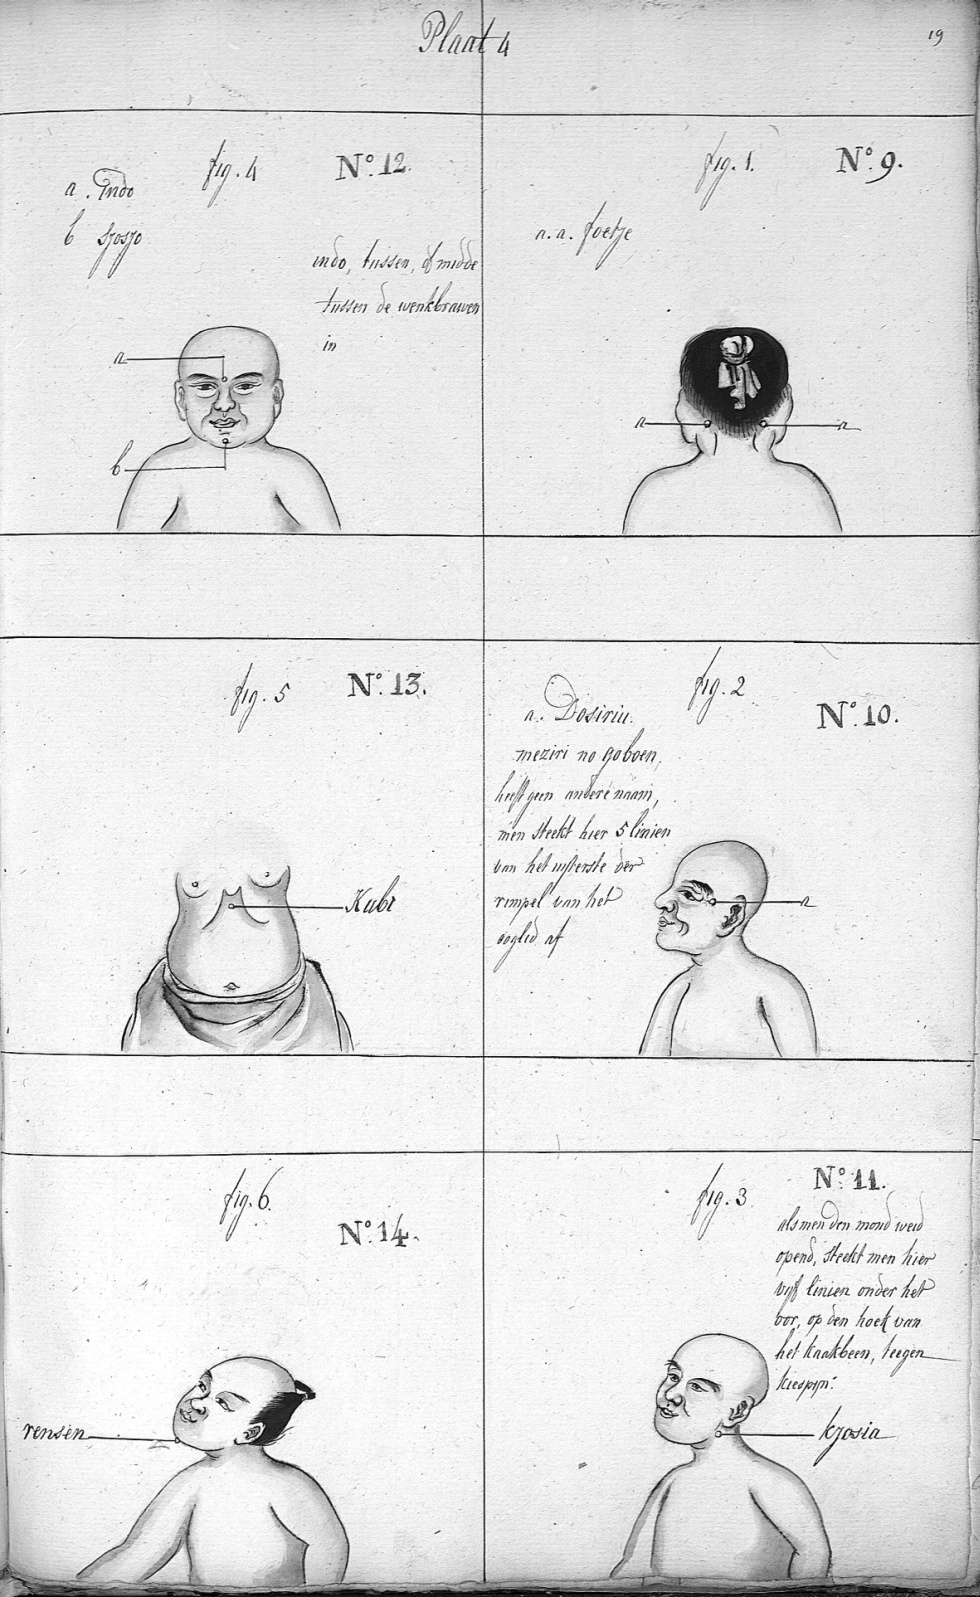 Plaat 4
19
fig. 4
N.º 12.
a. Indo
b sjosjo
indo, tussen, of midde
tussen de wenkbrawen
in
a
b
fig. 1.
N.º 9.
a.a. foetje
a
a
fig. 5
N.º 13.
Kubi
fig. 2
N.º 10.
a. Dosiriu.
meziri no goboen,
heeft geen andere naam,
men steekt hier 5 linien
van het uijterste der
rimpel van het
ooglid af
a
fig. 6.
N.º 14.
rensen
fig. 3
N.º 11.
als men den mond weid
opend, steekt men hier
vijf linien onder het
oor, op den hoek van
het kaakbeen, teegen
kiespijn:
kjosia